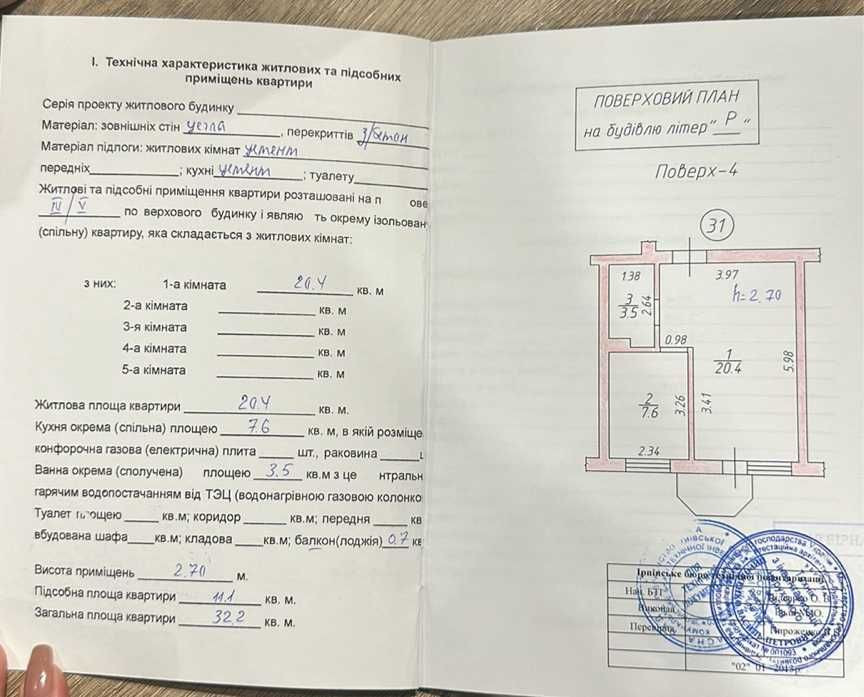 І. Технічна характеристика житлових та підсобних
приміщень квартири
Серія проекту житлового будинку
Матеріал: зовнішніх стін цегла, перекриттів з/бетон
Матеріал підлоги: житлових кімнат цемент
передніх ; кухні цемент ; туалету
Житлові та підсобні приміщення квартири розташовані на п ове
IV / V по верхового будинку і являю ть окрему ізольован
(спільну) квартиру, яка складається з житлових кімнат:
з них: 1-а кімната 20.4 кв. м
2-а кімната кв. м
3-я кімната кв. м
4-а кімната кв. м
5-а кімната кв. м
Житлова площа квартири 20.4 кв. м.
Кухня окрема (спільна) площею 7.6 кв. м, в якій розміще
конфорочна газова (електрична) плита шт., раковина
Ванна окрема (сполучена) площею 3.5 кв.м з це нтральн
гарячим водопостачанням від ТЭЦ (водонагрівною газовою колонко
Туалет площею кв.м; коридор кв.м; передня кв
вбудована шафа кв.м; кладова кв.м; балкон(лоджія) 0.7 кв
Висота приміщень 2.70 м.
Підсобна площа квартири 11.1 кв. м.
Загальна площа квартири 32.2 кв. м.
ПОВЕРХОВИЙ ПЛАН
на будівлю літер "Р"
Поверх-4
31
1.38
3.97
h=2.70
3
3.5
2.64
0.98
1
20.4
5.98
2
7.6
3.26
3.41
2.34
Ірпінське бюро технічної інвентаризації
Нач. БТІ
Виконав
Перевірив
"02" 01 2013р